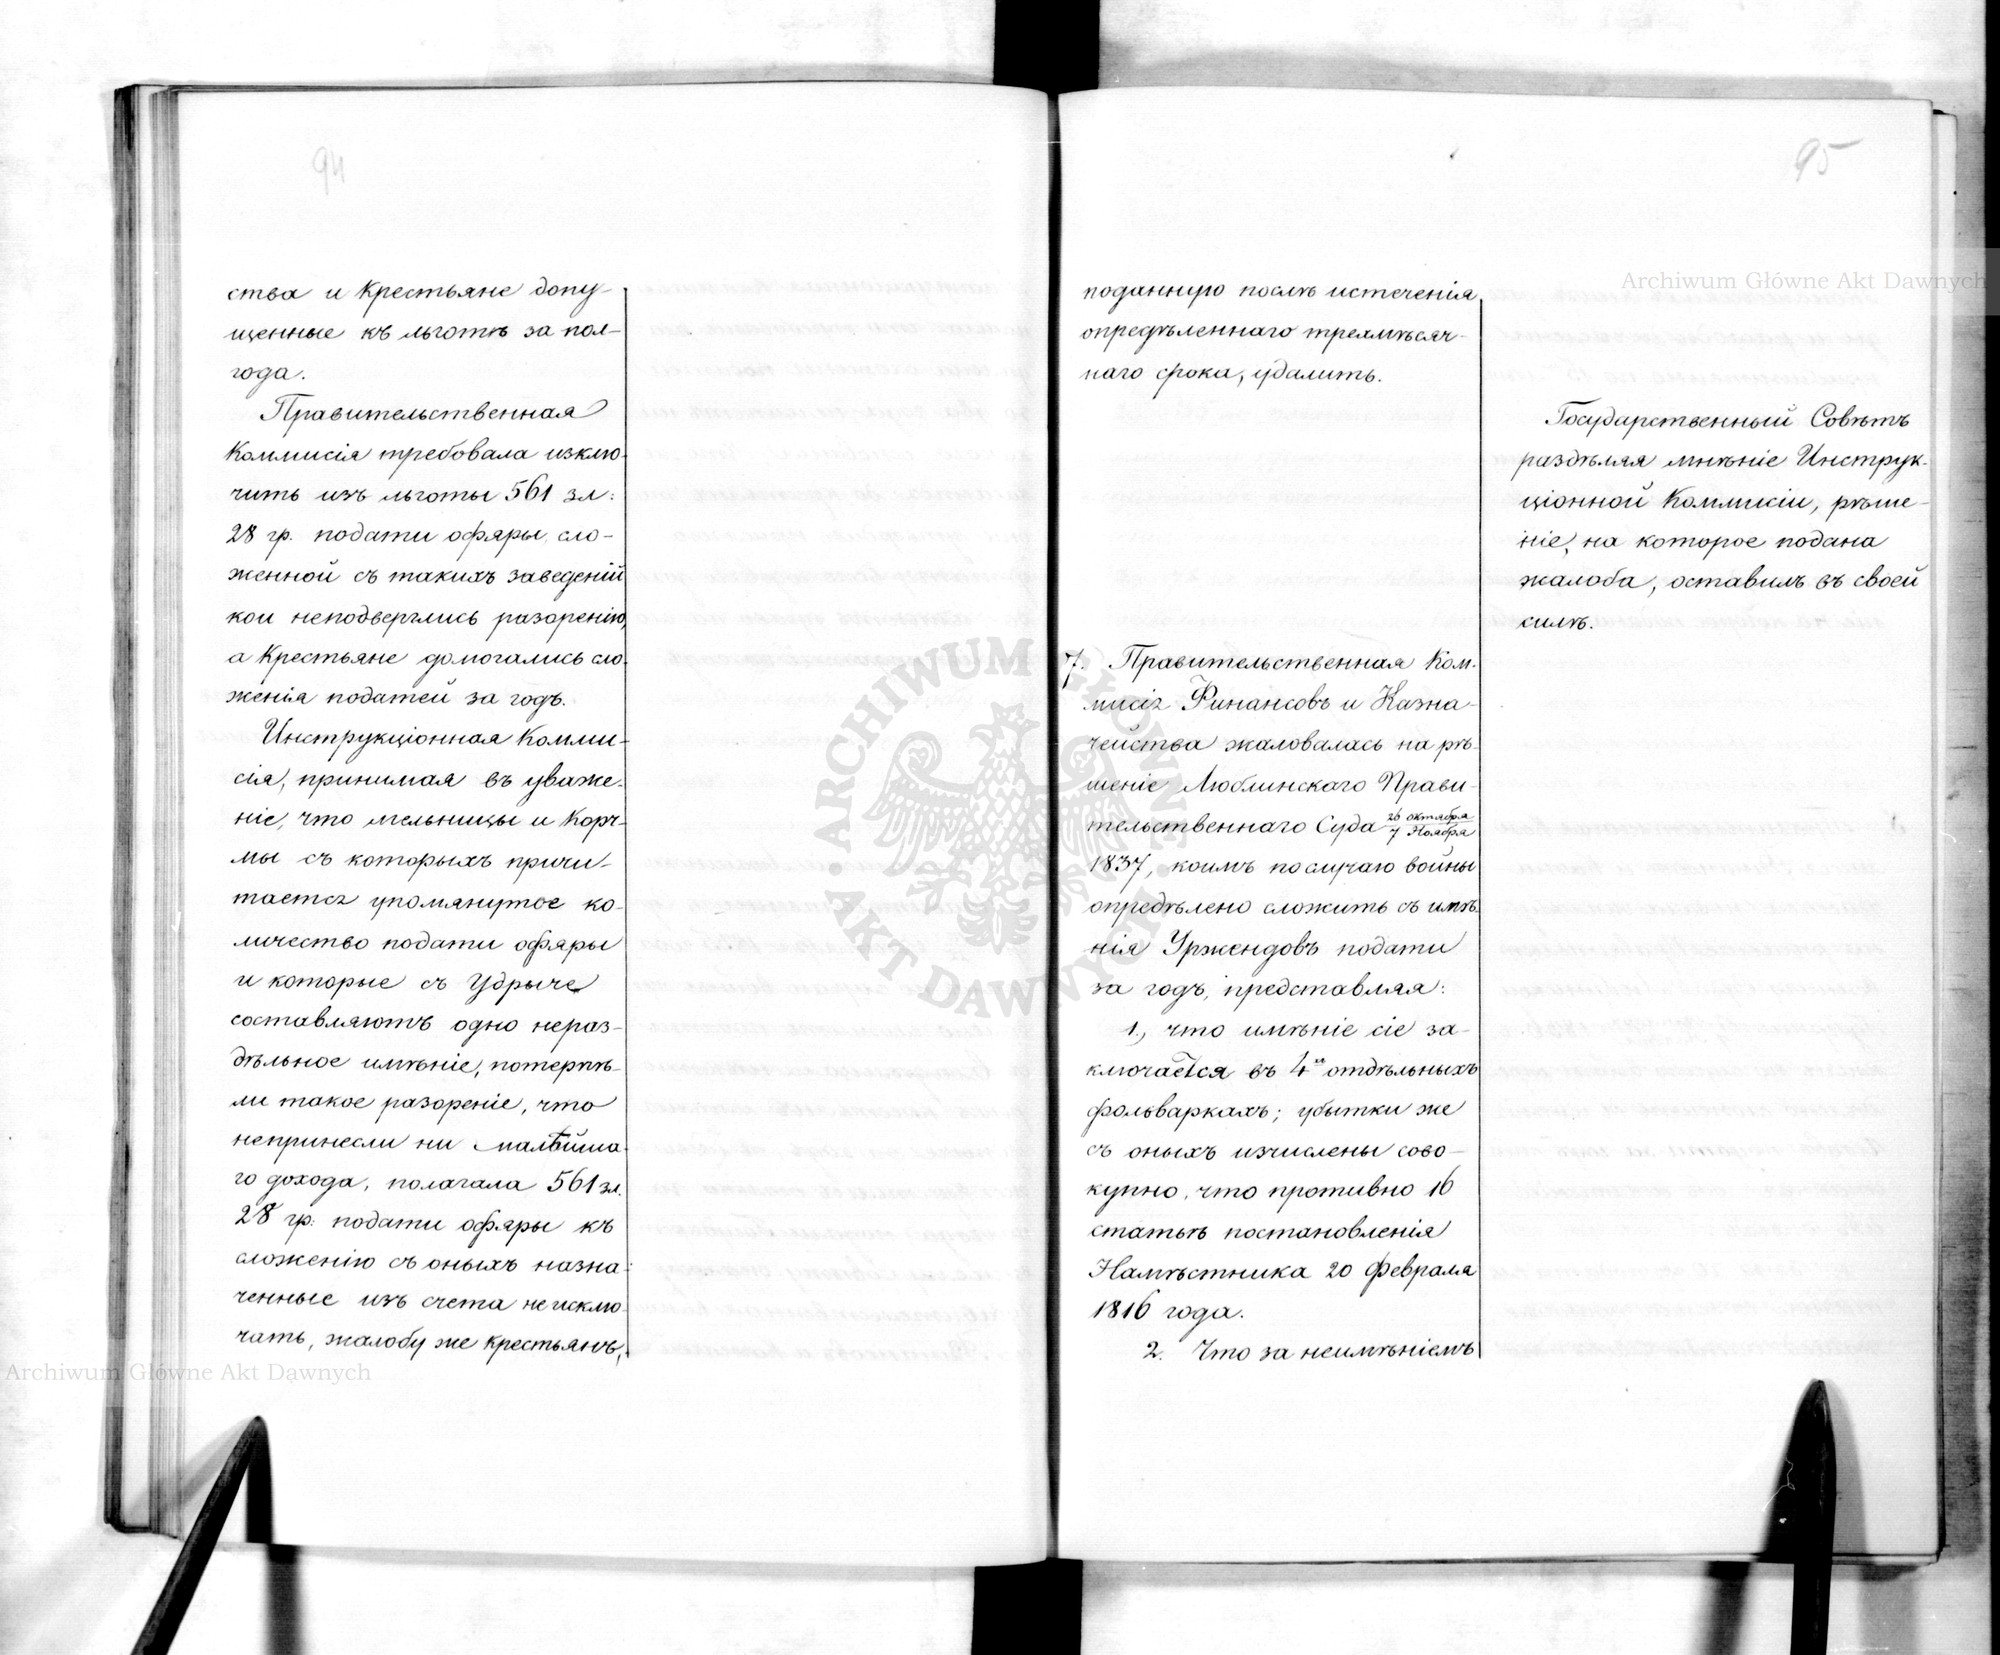 94
ства и Крестьяне допу-
щенные къ льготѣ за пол-
года.
Правительственная
Коммисія требовала исклю-
чить изъ льготы 561 зл:
28 гр. подати офяры, сло-
женной съ такихъ заведеній
кои неподверглись разоренію,
а Крестьяне домогались сло-
женія податей за годъ.
Инструкціонная Комми-
сія, принимая въ уваже-
ніе, что мельницы и Корч-
мы съ которыхъ причи-
тается упомянутое ко-
личество подати офяры
и которые съ Удрыче
составляютъ одно нераз-
дѣльное имѣніе, потерпѣ-
ли такое разореніе, что
непринесли ни малѣйша-
го дохода, полагала 561 зл.
28 гр: подати офяры къ
сложенію съ оныхъ назна-
ченные изъ счета не исклю-
чать, жалобу же крестьянъ,
95
поданную послѣ истеченія
опредѣленнаго трехмѣсяч-
наго срока, удалить.
Государственный Совѣтъ
раздѣляя мнѣніе Инструк-
ціонной Коммисіи, рѣше-
ніе, на которое подана
жалоба, оставилъ въ своей
силѣ.
7. Правительственная Ком-
мисія Финансовъ и Казна-
чейства жаловалась на рѣ-
шеніе Люблинскаго Прави-
тельственнаго Суда 26 октября / 7 Ноября
1837, коимъ по случаю войны
опредѣлено сложить съ имѣ-
нія Уржендовъ подати
за годъ, представляя:
1., что имѣніе сіе за-
ключается въ 4хъ отдѣльныхъ
фольваркахъ; убытки же
съ оныхъ изчислены сово-
купно, что противно 16
статьѣ постановленія
Намѣстника 20 Февраля
1816 года.
2. Что за неимѣніемъ
Archiwum Główne Akt Dawnych
Archiwum Główne Akt Dawnych
ARCHIWUM GŁÓWNE AKT DAWNYCH